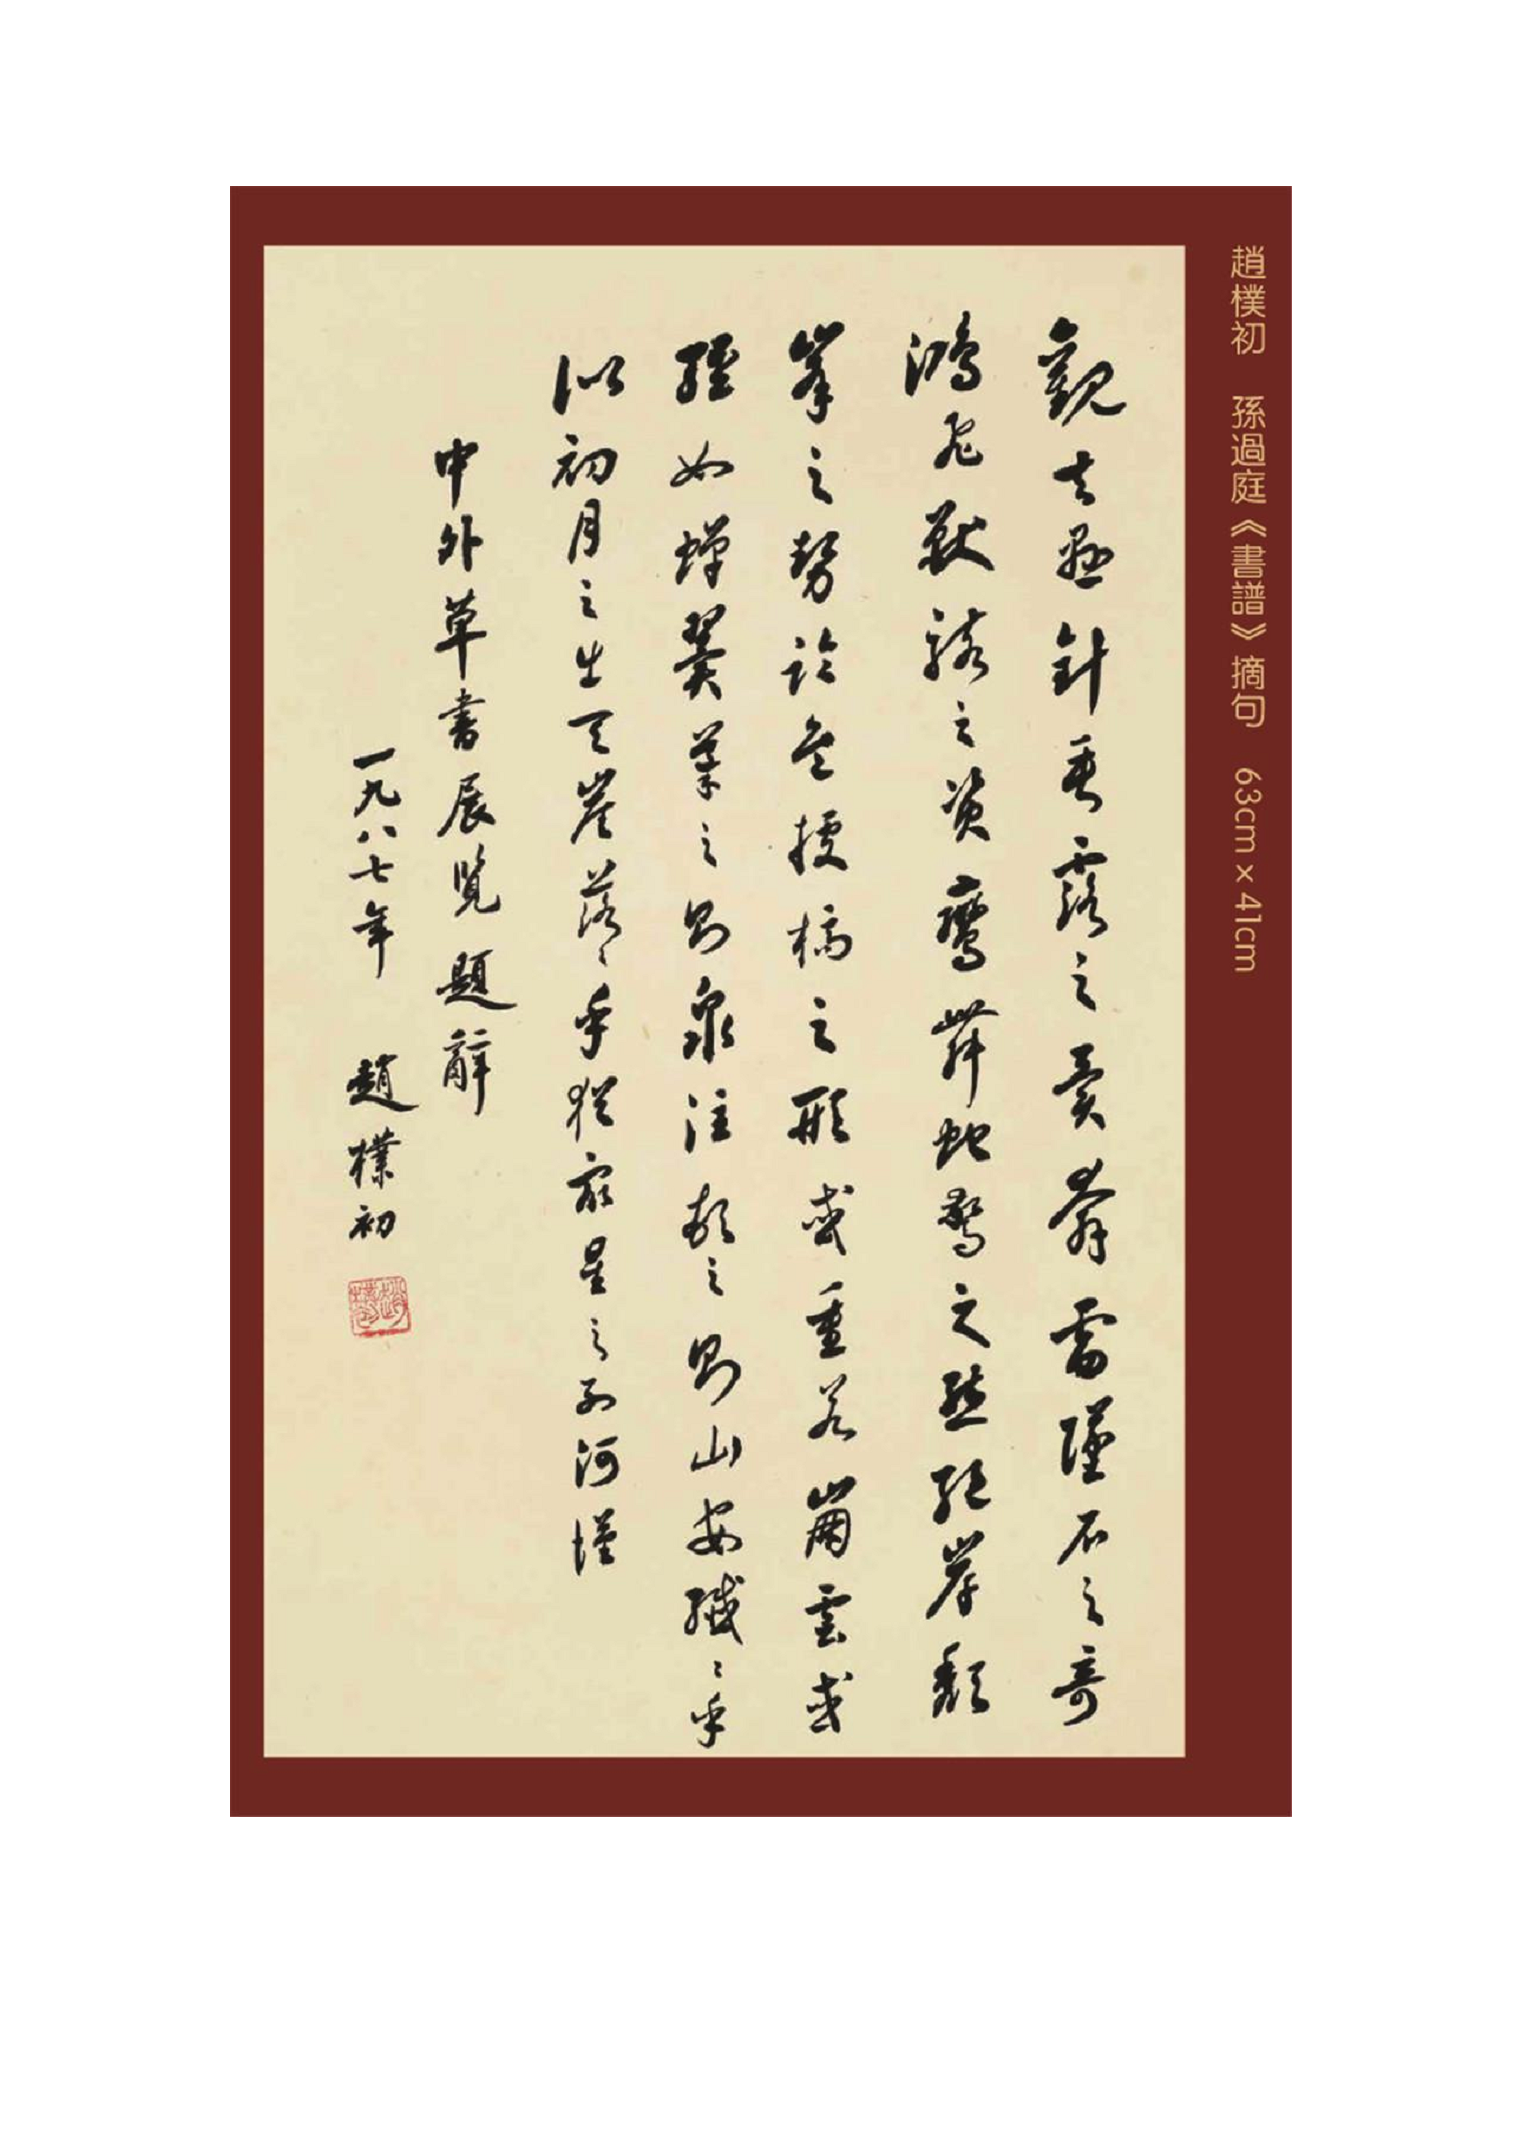 趙樸初 孫過庭《書譜》摘句 63cm×41cm
觀夫懸針垂露之異奔雷墜石之奇
鴻飛獸駭之資鸞舞蛇驚之態絕岸頹
峯之勢臨危據槁之形或重若崩雲或
輕如蟬翼導之則泉注頓之則山安纖〻乎
似初月之出天崖落〻乎猶眾星之列河漢
中外草書展覽題辭
一九八七年 趙樸初